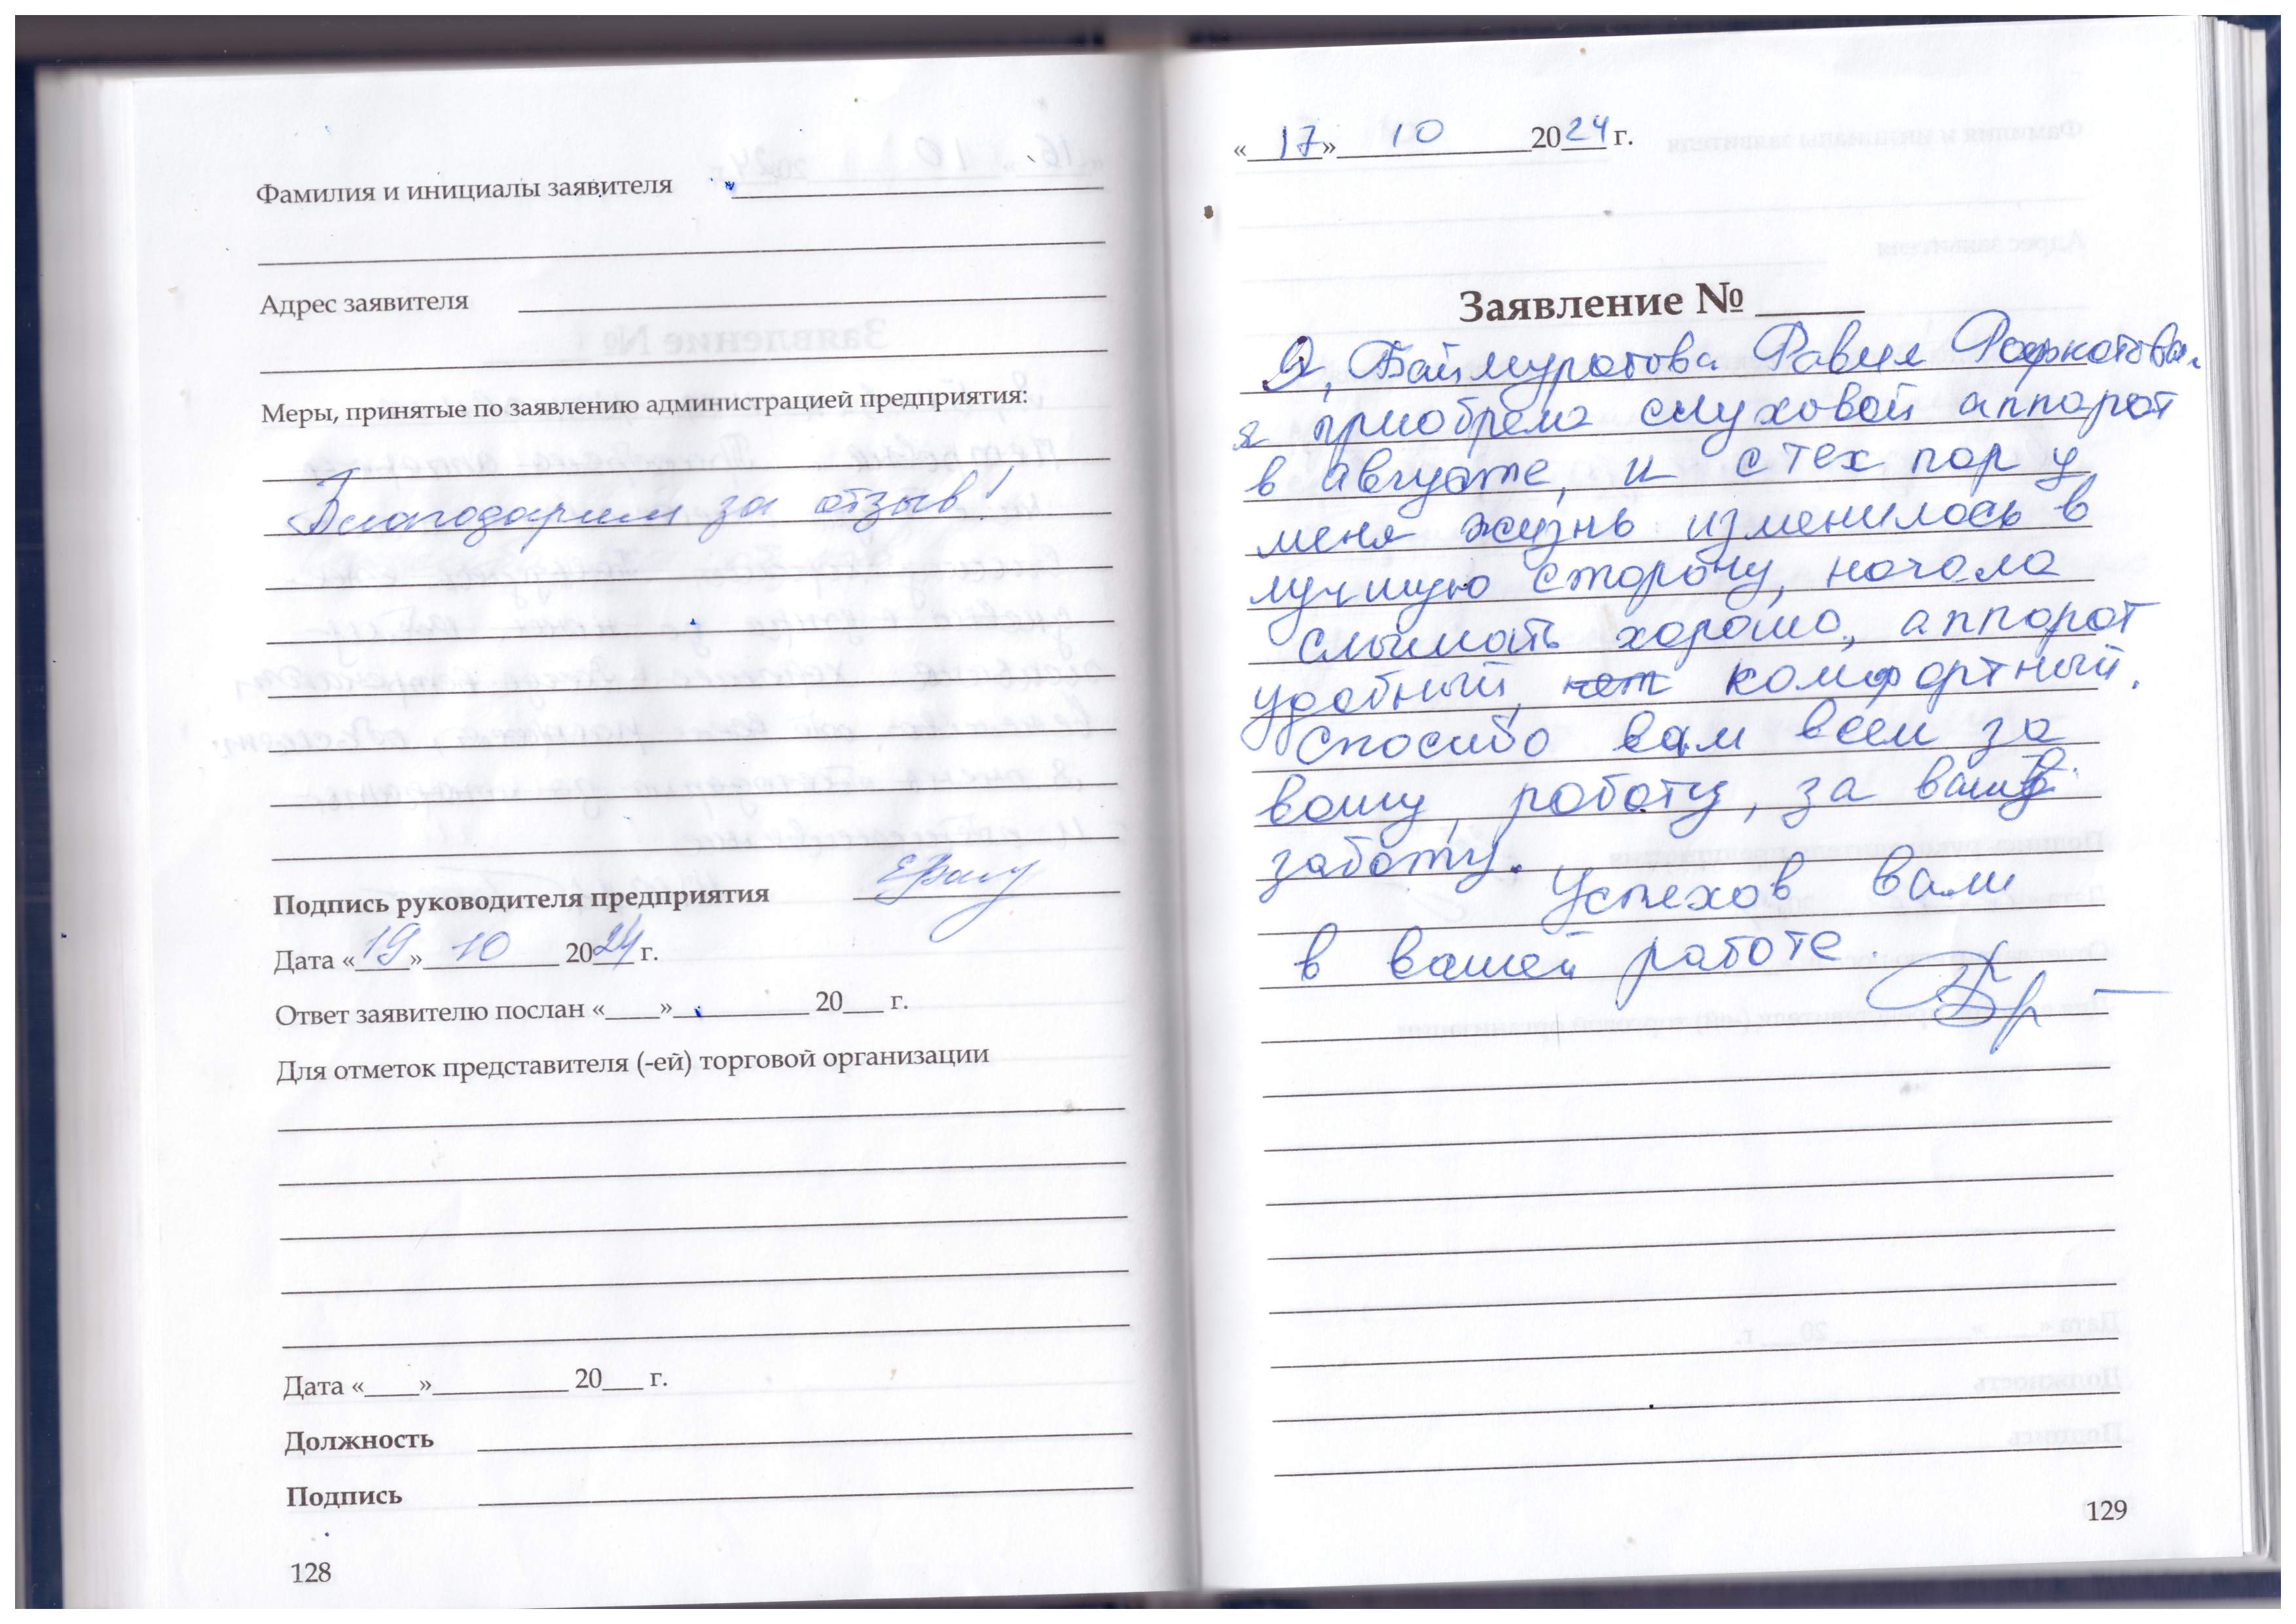 Фамилия и инициалы заявителя
Адрес заявителя
Меры, принятые по заявлению администрацией предприятия:
Благодарим за отзыв!
Подпись руководителя предприятия
Дата «19» 10 2024 г.
Ответ заявителю послан «____»__________ 20___ г.
Для отметок представителя (-ей) торговой организации
Дата «____»__________ 20___ г.
Должность
Подпись
128
«17» 10 2024 г.
Заявление № ____
Я, Баймуратова Равия
я приобрела слуховой аппарат
в августе, и с тех пор у
меня жизнь изменилось в
лучшую сторону, начала
слышать хорошо, аппарат
удобный, комфортный.
Спасибо вам всем за
вашу, работу, за вашу
заботу. Успехов вам
в вашей работе.
129